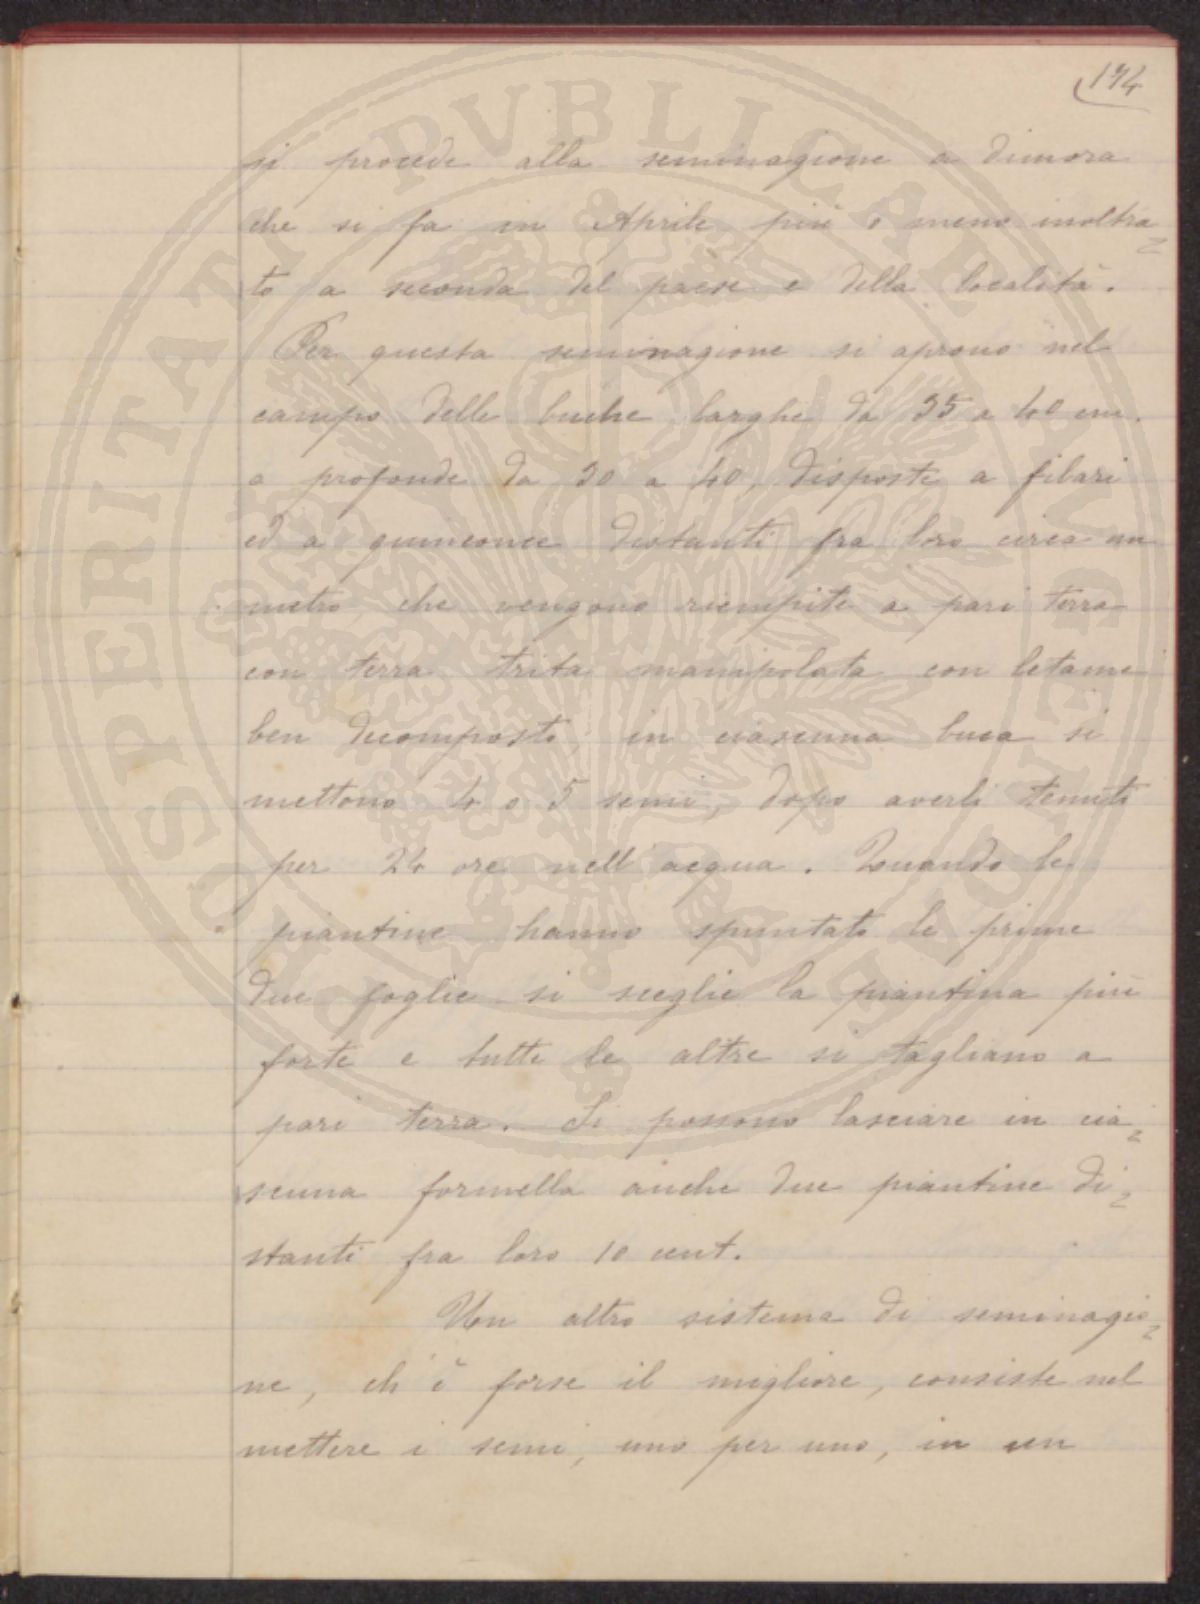 174
si procede alla seminagione a dimora
che si fa in Aprile più o meno inoltra=
to a seconda del paese e della località.
Per questa seminagione si aprono nel
campo delle buche larghe da 35 a 40 cm.
e profonde da 30 a 40, disposte a filari
ed a quinconce distanti fra loro circa un
metro, che vengono riempite a pari terra
con terra trita manipolata con letame
ben decomposto, in ciascuna buca si
mettono 4 o 5 semi, dopo averli tenuti
per 24 ore nell'acqua. Quando le
piantine hanno spuntato le prime
due foglie si sceglie la piantina più
forte e tutte le altre si tagliano a
pari terra. Si possono lasciare in cia=
scuna formella anche due piantine di=
stanti fra loro 10 cent.
Un altro sistema di seminagio=
ne, ch'è forse il migliore, consiste nel
mettere i semi, uno per uno, in un
PROSPERITATI PVBLICAE AVGENDAE